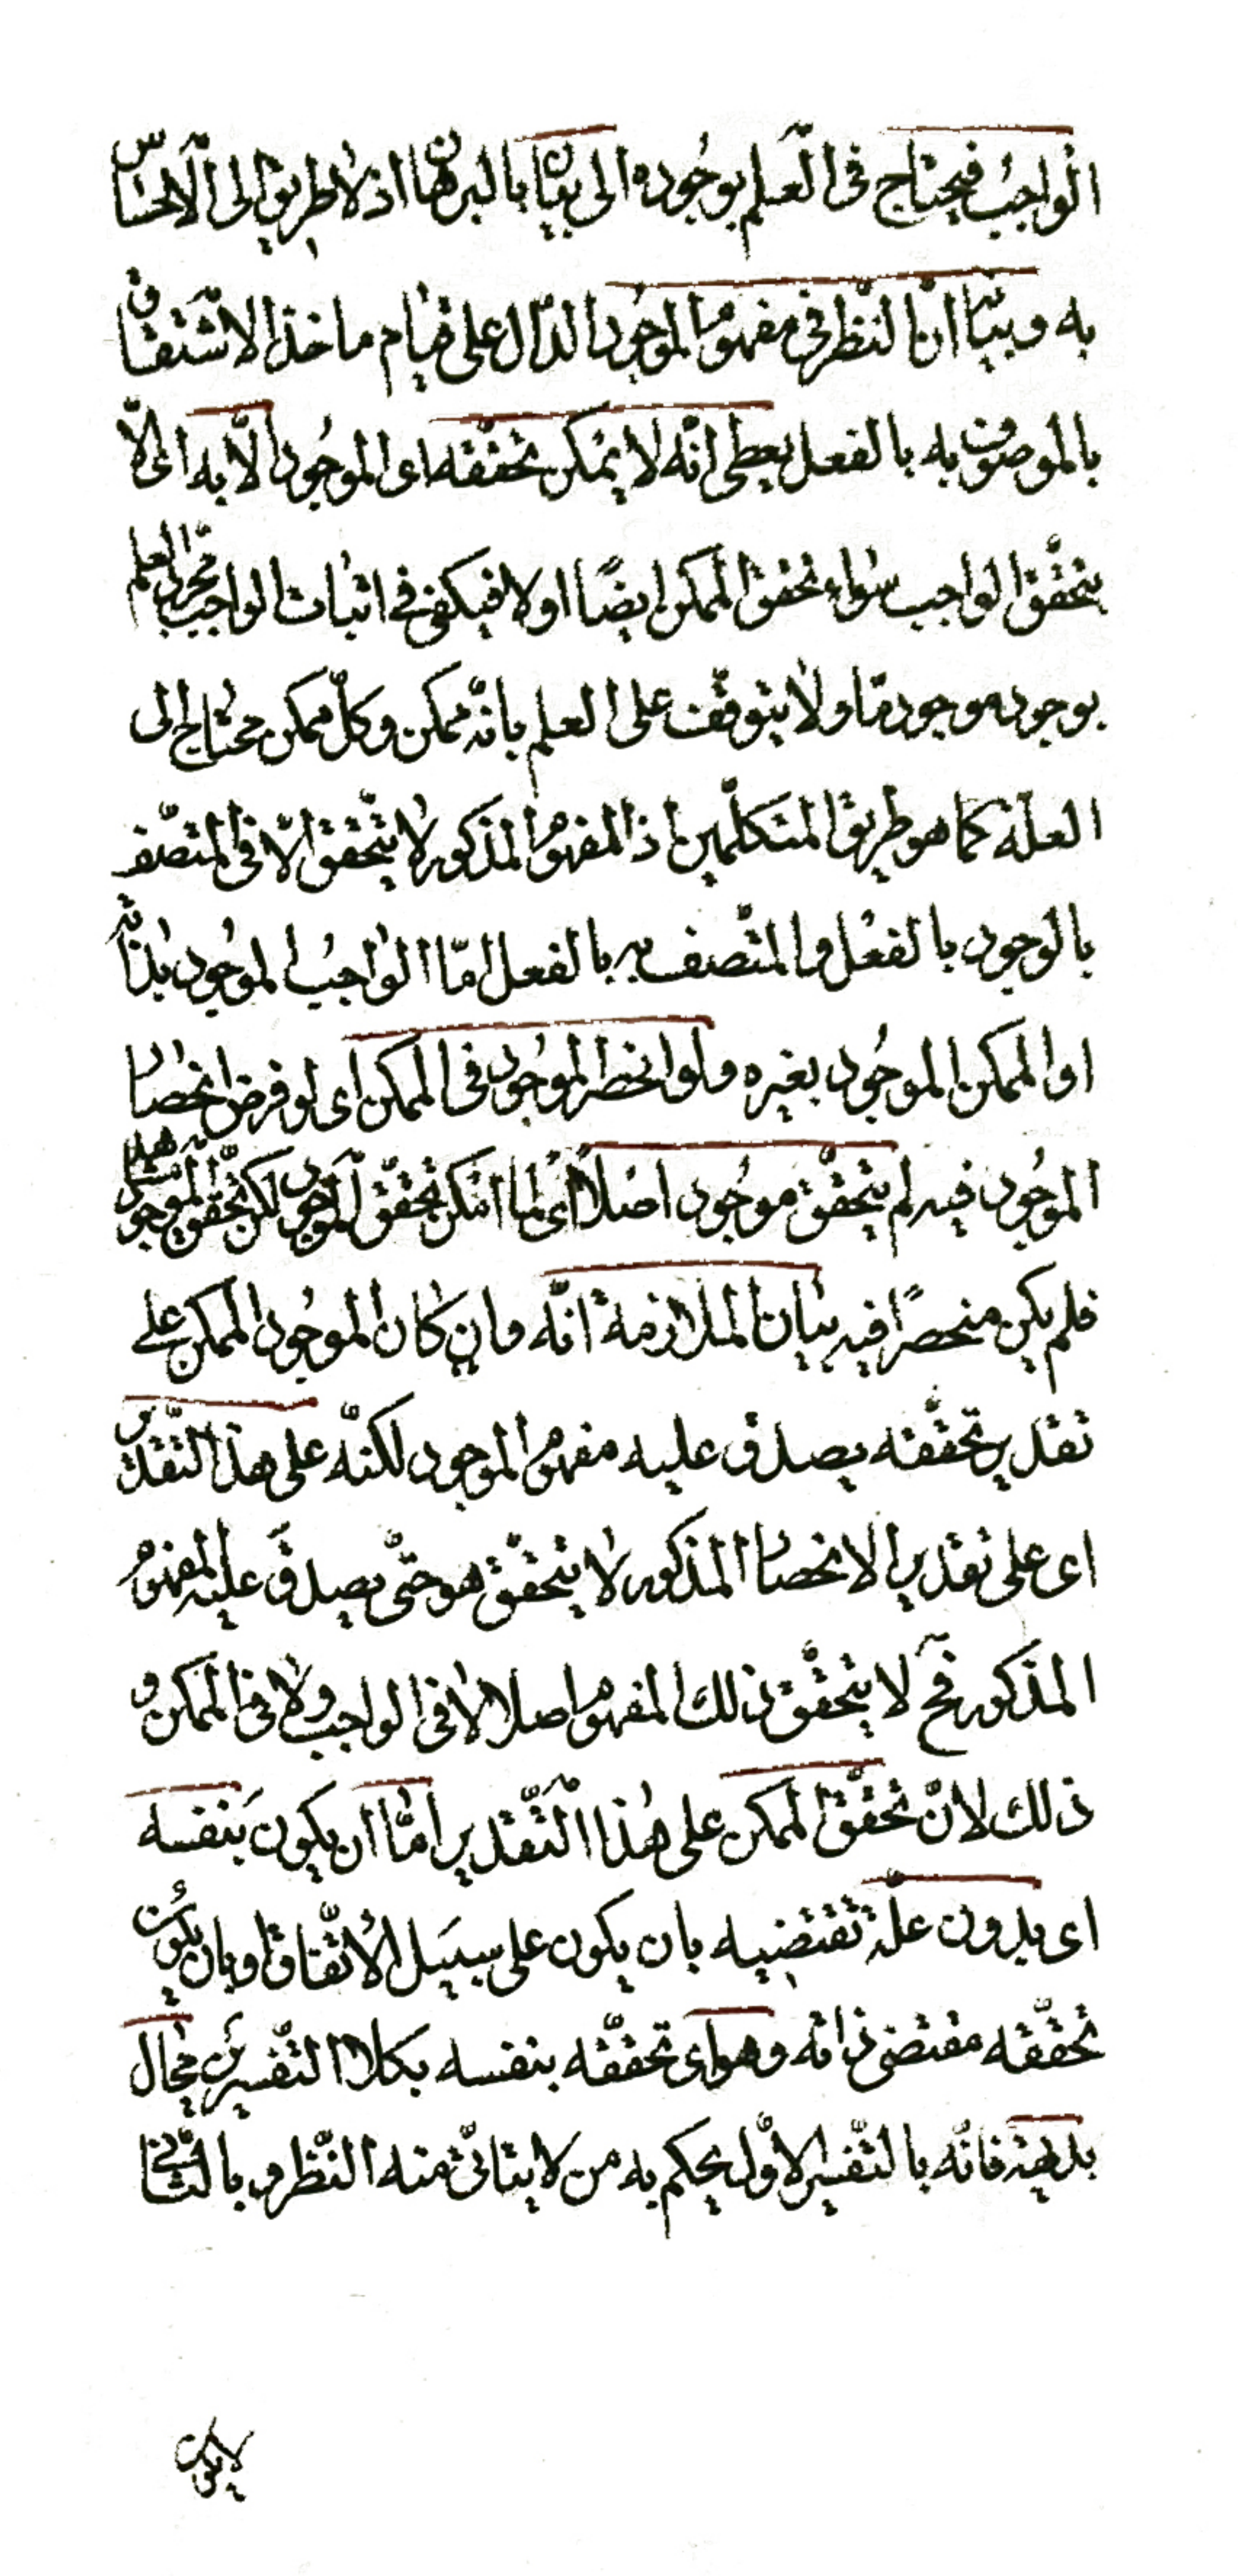 الواجبُ فيحتاج فى العلم بوجُوده الى بيان بالبرهان اذ لا طريق الى الاحساس
به وبيانه انّ النّظر فى مفهوم الموجُود الدّال على قيام ماخذ الاشتقاق
بالموصوف به بالفعل يعطى انّه لا يمكن تحقّقه اى الموجُود الّا به اى الّا
بتحقّق الواجب سواء تحقق الممكن ايضًا اولا فيكفى فى اثبات الواجب مجرّد العلم
بوجود موجود مّا ولا يتوقّف على العلم بانّه ممكن وكلّ ممكن محتاج الى
العلّة كما هو طريق المتكلّمين اذ المفهوم المذكور لا يتحقق الّا فى المتصّف
بالوجود بالفعل والمتّصف به بالفعل امّا الواجبُ الموجُود بذاته
او الممكن الموجُود بغيره ولو انحصر الموجُود فى الممكن اى لو فرض انحصار
الموجُود فيه لم يتحقّق موجُود اصلاً اى لما امكن تحقّق الموجود لكن تحقّق الموجود
فلم يكن منحصرًا فيه بيان الملازمة انّه وان كان الموجُود الممكن على
تقدير تحقّقه يصدق عليه مفهوم الموجود لكنّه على هذا التّقدير
اى على تقدير الانحصار المذكور لا يتحقّق هو حتّى يصدق عليه المفهوم
المذكور فح لا يتحقّق ذلك المفهوم اصلا لا فى الواجب ولا فى الممكن و
ذلك لانّ تحقّق الممكن على هذا التّقدير امّا ان يكون بنفسه
اى بدون علّة تقتضيه بان يكون على سبيل الاتّفاق او بان يكون
تحقّقه مقتضى ذاته وهو اى تحقّقه بنفسه بكلا التّفسيرين محال
بديهة فانّه بالتّفسير الاوّل يحكم به من لا يتاتّى منه النّظر وبالثّانى
لا يكون